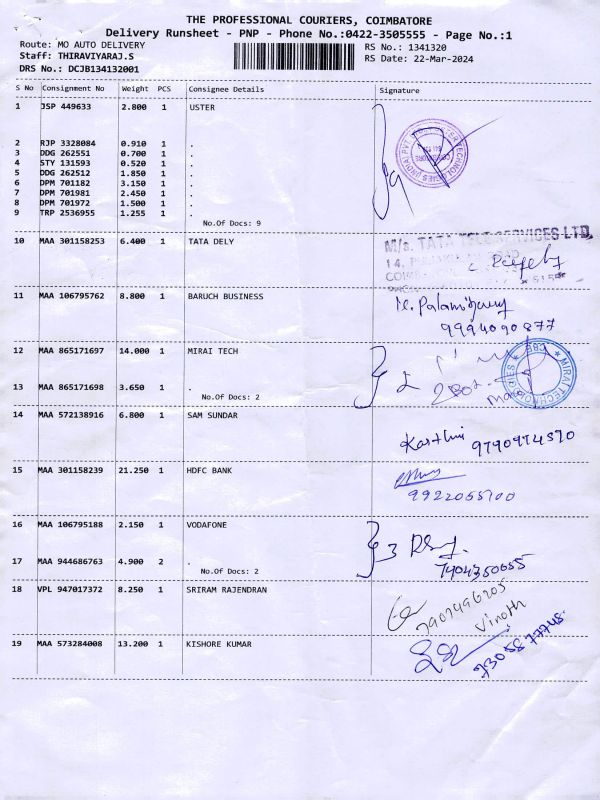 THE PROFESSIONAL COURIERS, COIMBATORE
Delivery Runsheet - PNP - Phone No.:0422-3505555 - Page No.:1
Route: MO AUTO DELIVERY RS No.: 1341320
Staff: THIRAVIYARAJ.S RS Date: 22-Mar-2024
DRS No.: DCJB134132001
S No Consignment No Weight PCS Consignee Details Signature
1 JSP 449633 2.800 1 USTER
2 RJP 3328084 0.910 1 .
3 DDG 262551 0.700 1 .
4 STY 131593 0.520 1 .
5 DDG 262512 1.850 1 .
6 DPM 701182 3.150 1 .
7 DPM 701981 2.450 1 .
8 DPM 701972 1.500 1 .
9 TRP 2536955 1.255 1 .
No.Of Docs: 9
M/s. TATA TELE SERVICES LTD,
10 MAA 301158253 6.400 1 TATA DELY
11 MAA 106795762 8.800 1 BARUCH BUSINESS
9994090877
12 MAA 865171697 14.000 1 MIRAI TECH
MIRAI TECHNOLOGIES ★ CBE ★
13 MAA 865171698 3.650 1 .
No.Of Docs: 2
14 MAA 572138916 6.800 1 SAM SUNDAR
Karthi 9790974570
15 MAA 301158239 21.250 1 HDFC BANK
9922055700
16 MAA 106795188 2.150 1 VODAFONE
17 MAA 944686763 4.900 2 .
7904350655
No.Of Docs: 2
18 VPL 947017372 8.250 1 SRIRAM RAJENDRAN
7907496205
Vinoth
19 MAA 573284008 13.200 1 KISHORE KUMAR
73058 77745